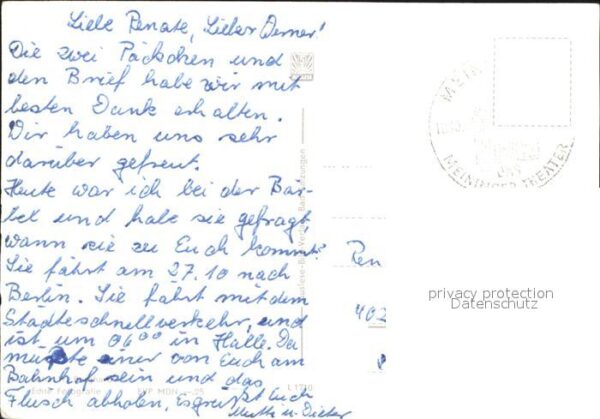 Liebe Renate, Lieber Werner!
Die zwei Päckchen und
den Brief habe wir mit
besten Dank erhalten.
Wir haben uns sehr
darüber gefreut.
Heute war ich bei der Bär-
bel und habe sie gefragt,
wann sie zu Euch kommt?
Sie fährt am 27.10 nach
Berlin. Sie fährt mit dem
Städteschnellverkehr, und
ist um 06⁰⁰ in Halle. Da
müßte einer von Euch am
Bahnhof sein und das
Fleisch abholen, es grüßt Euch
Mutti u. Dieter
MEININGER THEATER
Ren
402
privacy protection
Datenschutz